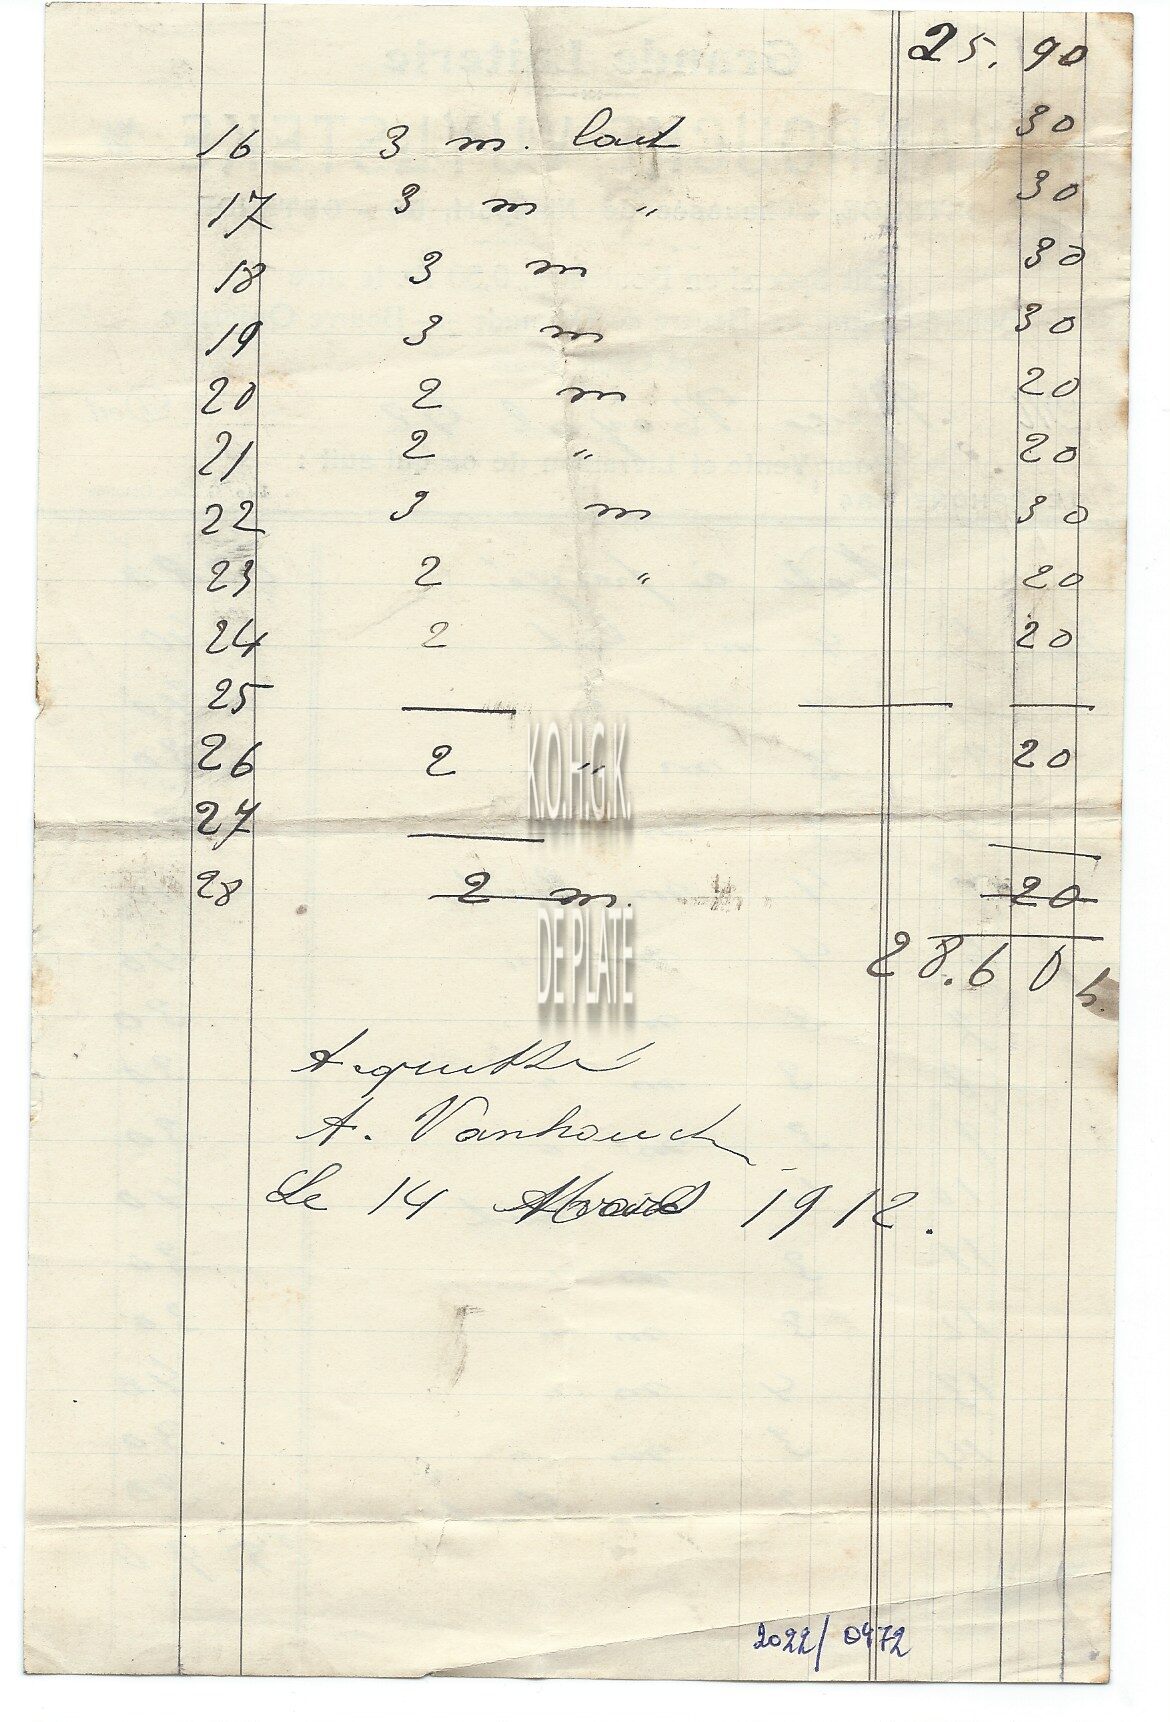 25.90
16 3 m. lait 30
17 3 m " 30
18 3 m 30
19 3 m 30
20 2 m 20
21 2 " 20
22 3 m 30
23 2 " 20
24 2 20
25 — — —
26 2 " 20
27 — —
28 2 m. 20
28.60
K.O.H.G.K.
DE PLATE
Acquitté
A.
Le 14 1912.
2022/0472